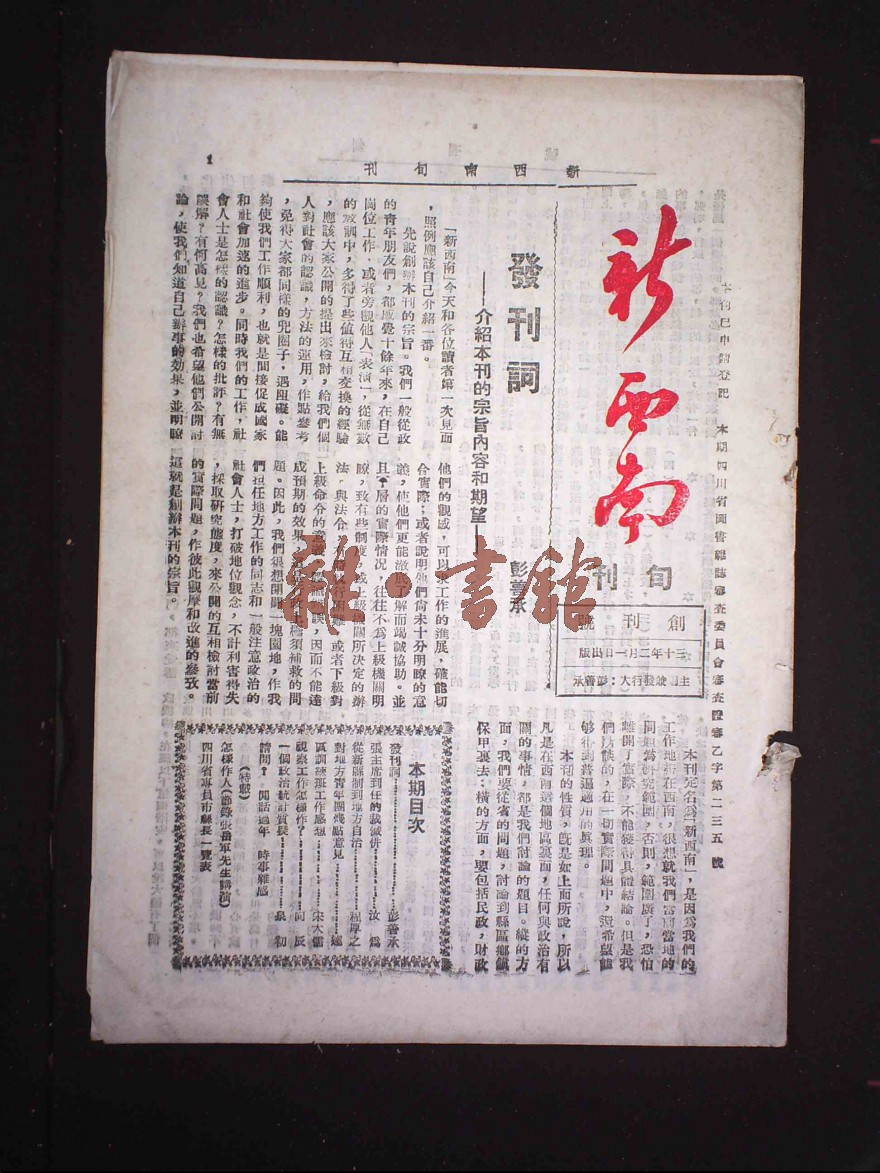 新西南旬刊
1
本刊已申請登記　本期四川省圖書雜誌審查委員會審查證審乙字第二三五號
新西南
旬刊
創刊號
三十年二月一日出版
主編兼發行人：彭善承
發刊詞
——介紹本刊的宗旨內容和期望——
彭善承
「新西南」今天和各位讀者第一次見面
，照例應該自己介紹一番。
先說創辦本刊的宗旨。我們一般從政
的青年朋友們，都感覺十餘年來，在自己
崗位工作，或者旁觀他人「表演」，從無數
的教訓中，多得了些值得互相交換的經驗
，應該大家公開的提出來檢討，給我們個
人對社會的認識，方法的運用，作點參考
，免得大家都同樣的兜圈子，遇阻礙。能
夠使我們工作順利，也就是間接促成國家
和社會加速的進步。同時我們的工作，社
會人士是怎樣的認識？怎樣的批評？有無
誤解？有何高見？我們也希望他們公開討
論，使我們知道自己辦事的效果，並明瞭
他們的觀感，可以求工作的進展，確能切
合實際；或者說明他們尚未十分明瞭的意
義，使他們更能澈底了解而竭誠協助。並
且下層的實際情況，往往不為上級機關明
瞭，致有些制度，或上級機關所決定的辦
法，與法令，有
或者下級對
上級命令的意義
誤，因而不能達
成預期的效果，
極須補救的問
題。因此，我們很想開闢一塊園地，作我
們担任地方工作的同志和一般注意政治的
社會人士，打破地位觀念，不計利害得失
，採取研究態度，來公開的互相檢討當前
的實際問題，作彼此觀摩和改進的參攷。
這就是創辦本刊的宗旨。
本刊定名為「新西南」，是因為我們的
工作地帶在西南，很想就我們當前當地的
問題為研究範圍，否則，範圍廣了，恐怕
離開了實際，不能獲得具體結論。但是我
們所談的，在一切實際問題中，還希望能
夠得到普遍適用的真理。
本刊的性質，既是如上面所說，所以
凡是在西南這個地區裏面，任何與政治有
關的事情，都是我們討論的題目。縱的方
面，我們要從省的問題，討論到縣區鄉鎮
保甲裏去；橫的方面，要包括民政，財政
本期目次
發刊詞……彭善承
張主席到任的裁減併……汝為
從新縣制到地方自治……程厚之
對地方青年團幾點意見……
區訓練班工作感想……宋大魯
視察工作怎樣作？……向辰
一個政治統計質長……泉初
請問？　閒話過年　時事雜感
（特載）
怎樣作人（節錄張岳軍先生講演）
四川省專員市縣長一覽表